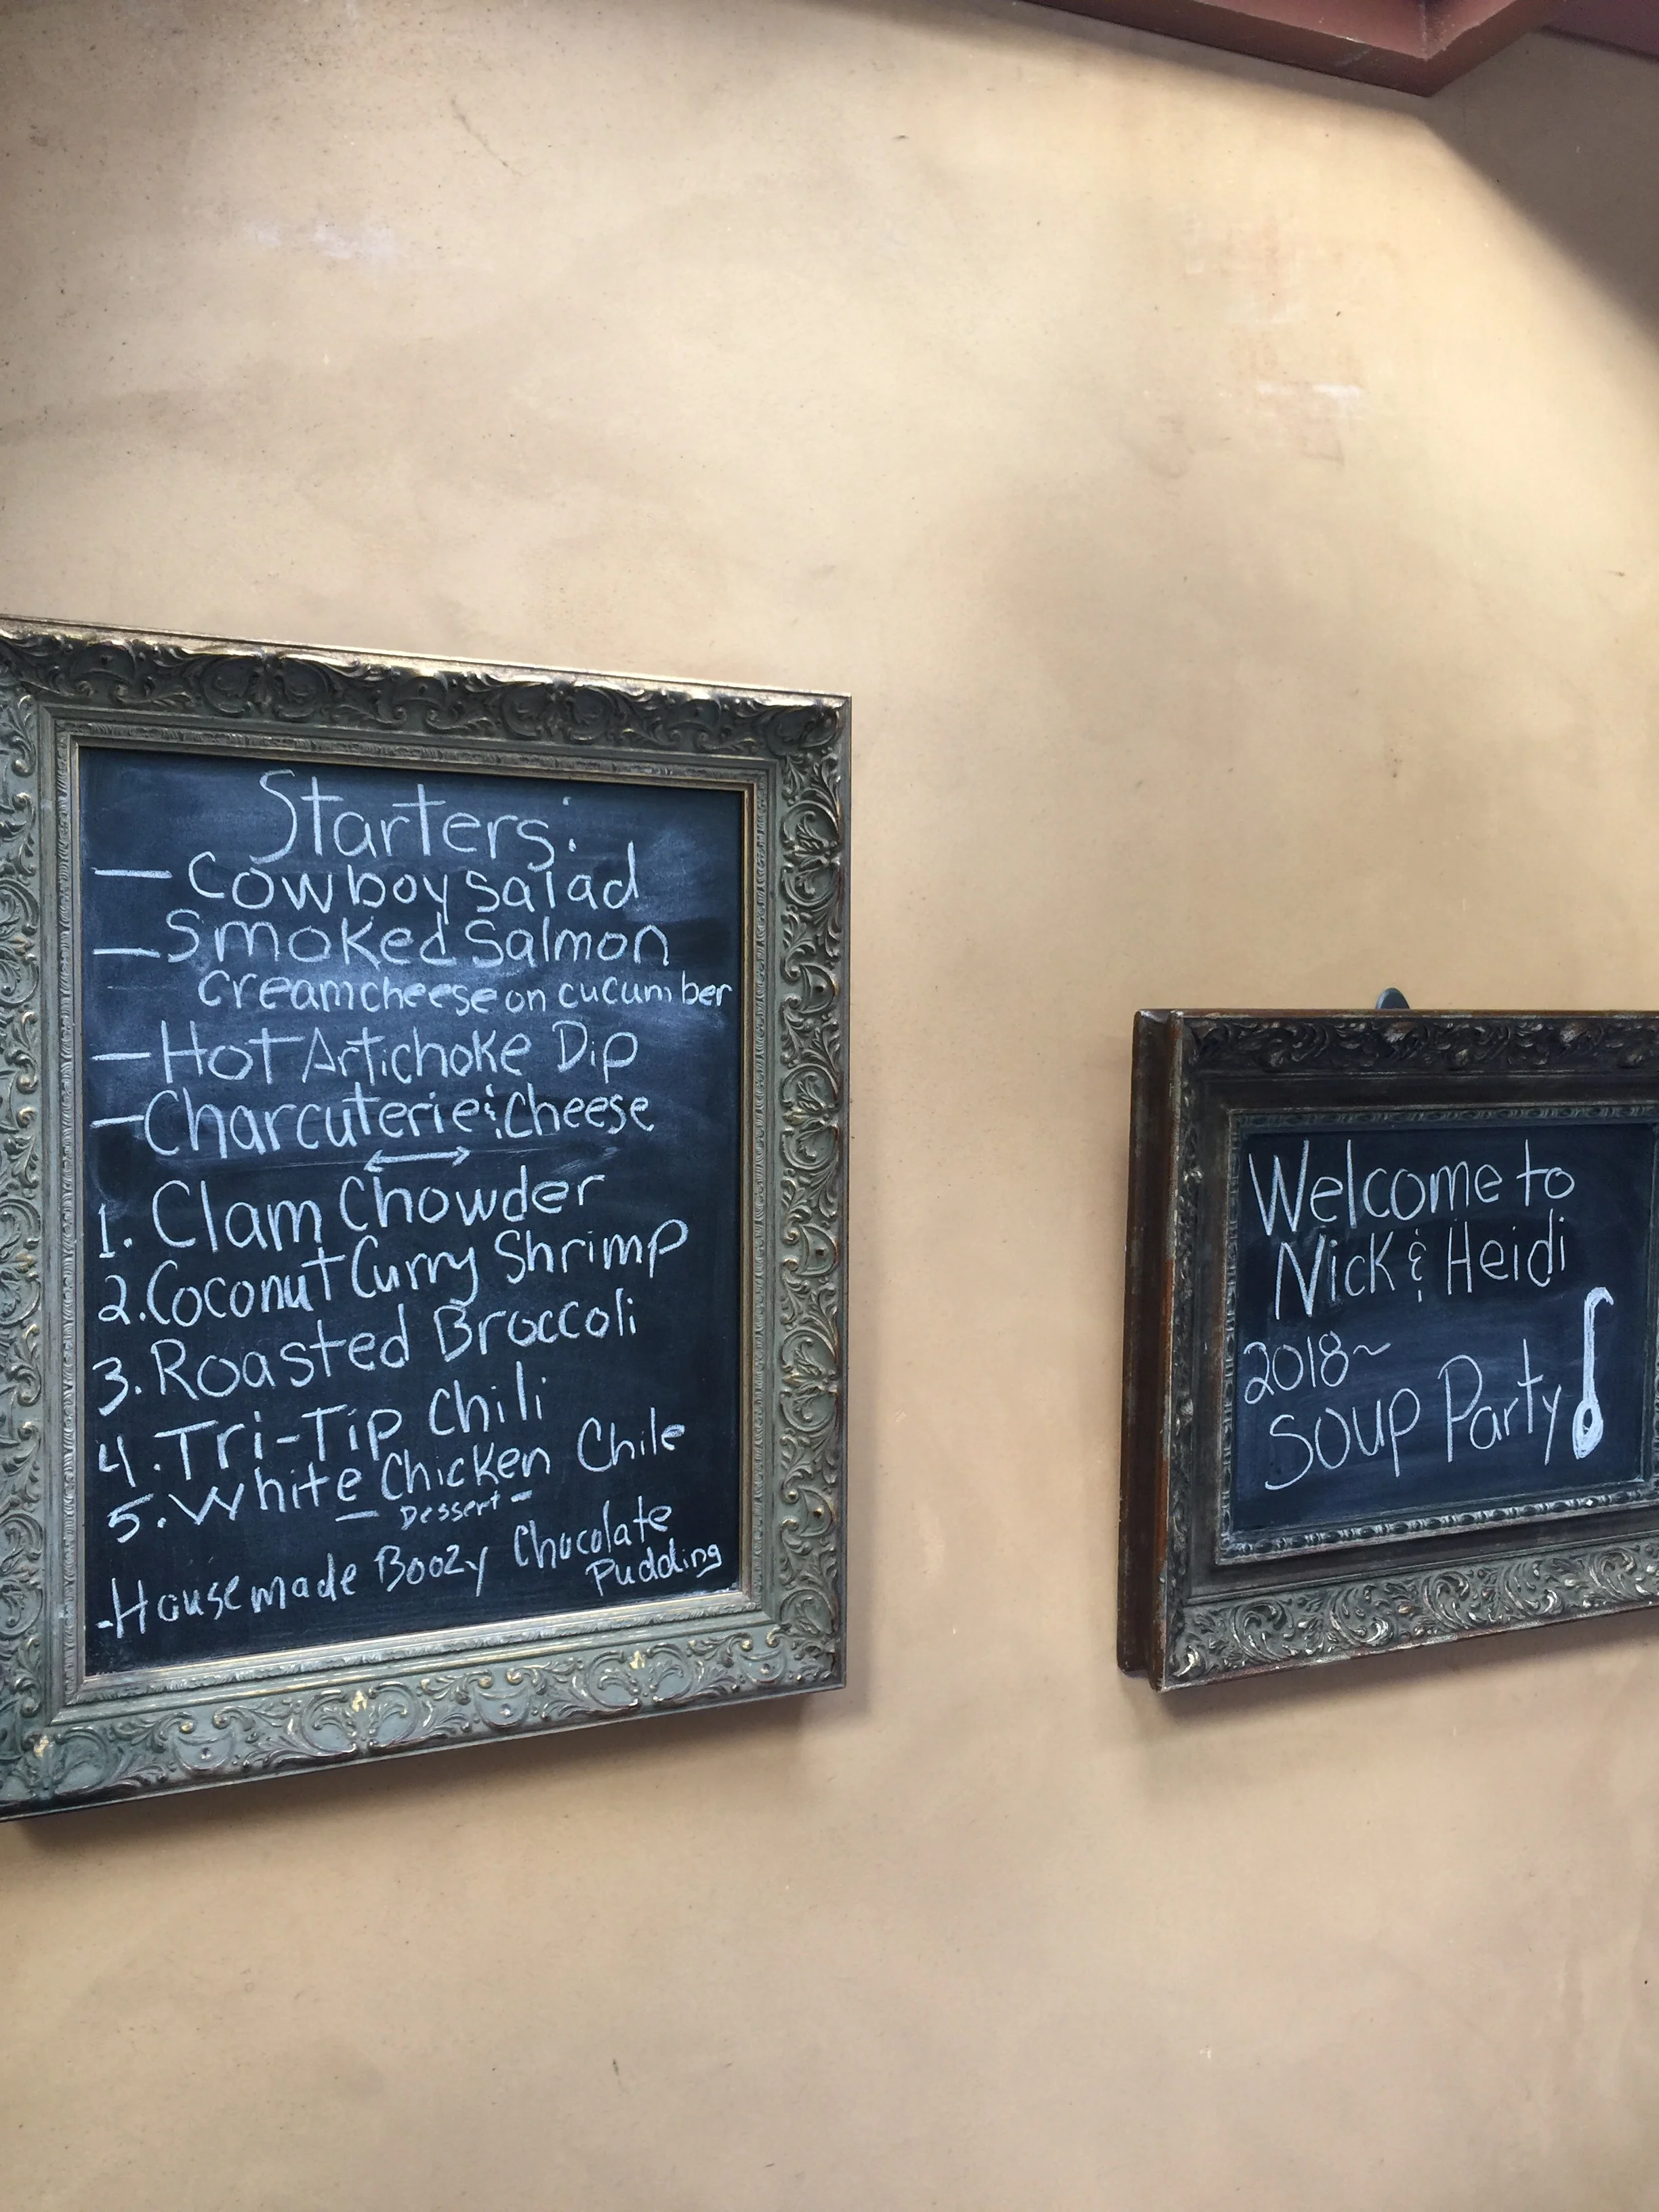 Starters:
— Cowboy salad
— Smoked Salmon
creamcheese on cucumber
— Hot Artichoke Dip
— Charcuterie & Cheese
1. Clam Chowder
2. Coconut Curry Shrimp
3. Roasted Broccoli
4. Tri-Tip Chili
5. White Chicken Chile
— Dessert —
- Housemade Boozy Chocolate
Pudding
Welcome to
Nick & Heidi
2018~
Soup Party